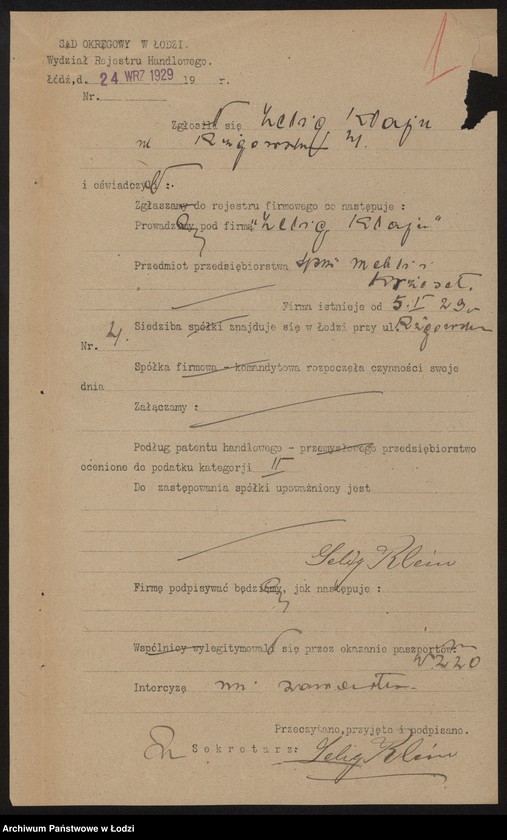 SĄD OKRĘGOWY W ŁODZI.
Wydział Rejestru Handlowego.
Łódź,d. 24 WRZ 1929 19 r.
1
Nr.
Zgłosiła się Zelsig Klajn
ul Rzgowska 4.
i oświadczył :
Zgłaszamy do rejestru firmowego co następuje :
Prowadzimy pod firmą "Zelsig Klajn"
Przedmiot przedsiębiorstwa sprz mebli i
krzeseł.
Firma istnieje od 5.I 29 r
Siedziba spółki znajduje się w Łodzi przy ul. Rzgowska
Nr. 4.
Spółka firmowa - komandytowa rozpoczęła czynności swoje
dnia
Załączamy :
Podług patentu handlowego - przemysłowego przedsiębiorstwo
ocenione do podatku kategorji II
Do zastępowania spółki upoważniony jest
Selig Klein
Firmę podpisywać będziemy, jak następuje :
Wspólnicy wylegitymowali się przez okazanie paszportów.
220
Intorcyzę nie zawarłem
Przeczytano,przyjęto i podpisano.
Sekretarz: Selig Klein
Archiwum Państwowe w Łodzi